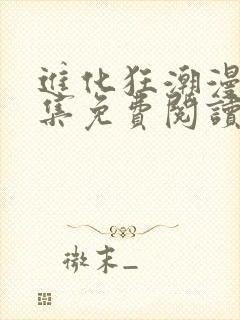 進化狂潮漫
集免費閱讀
微末_